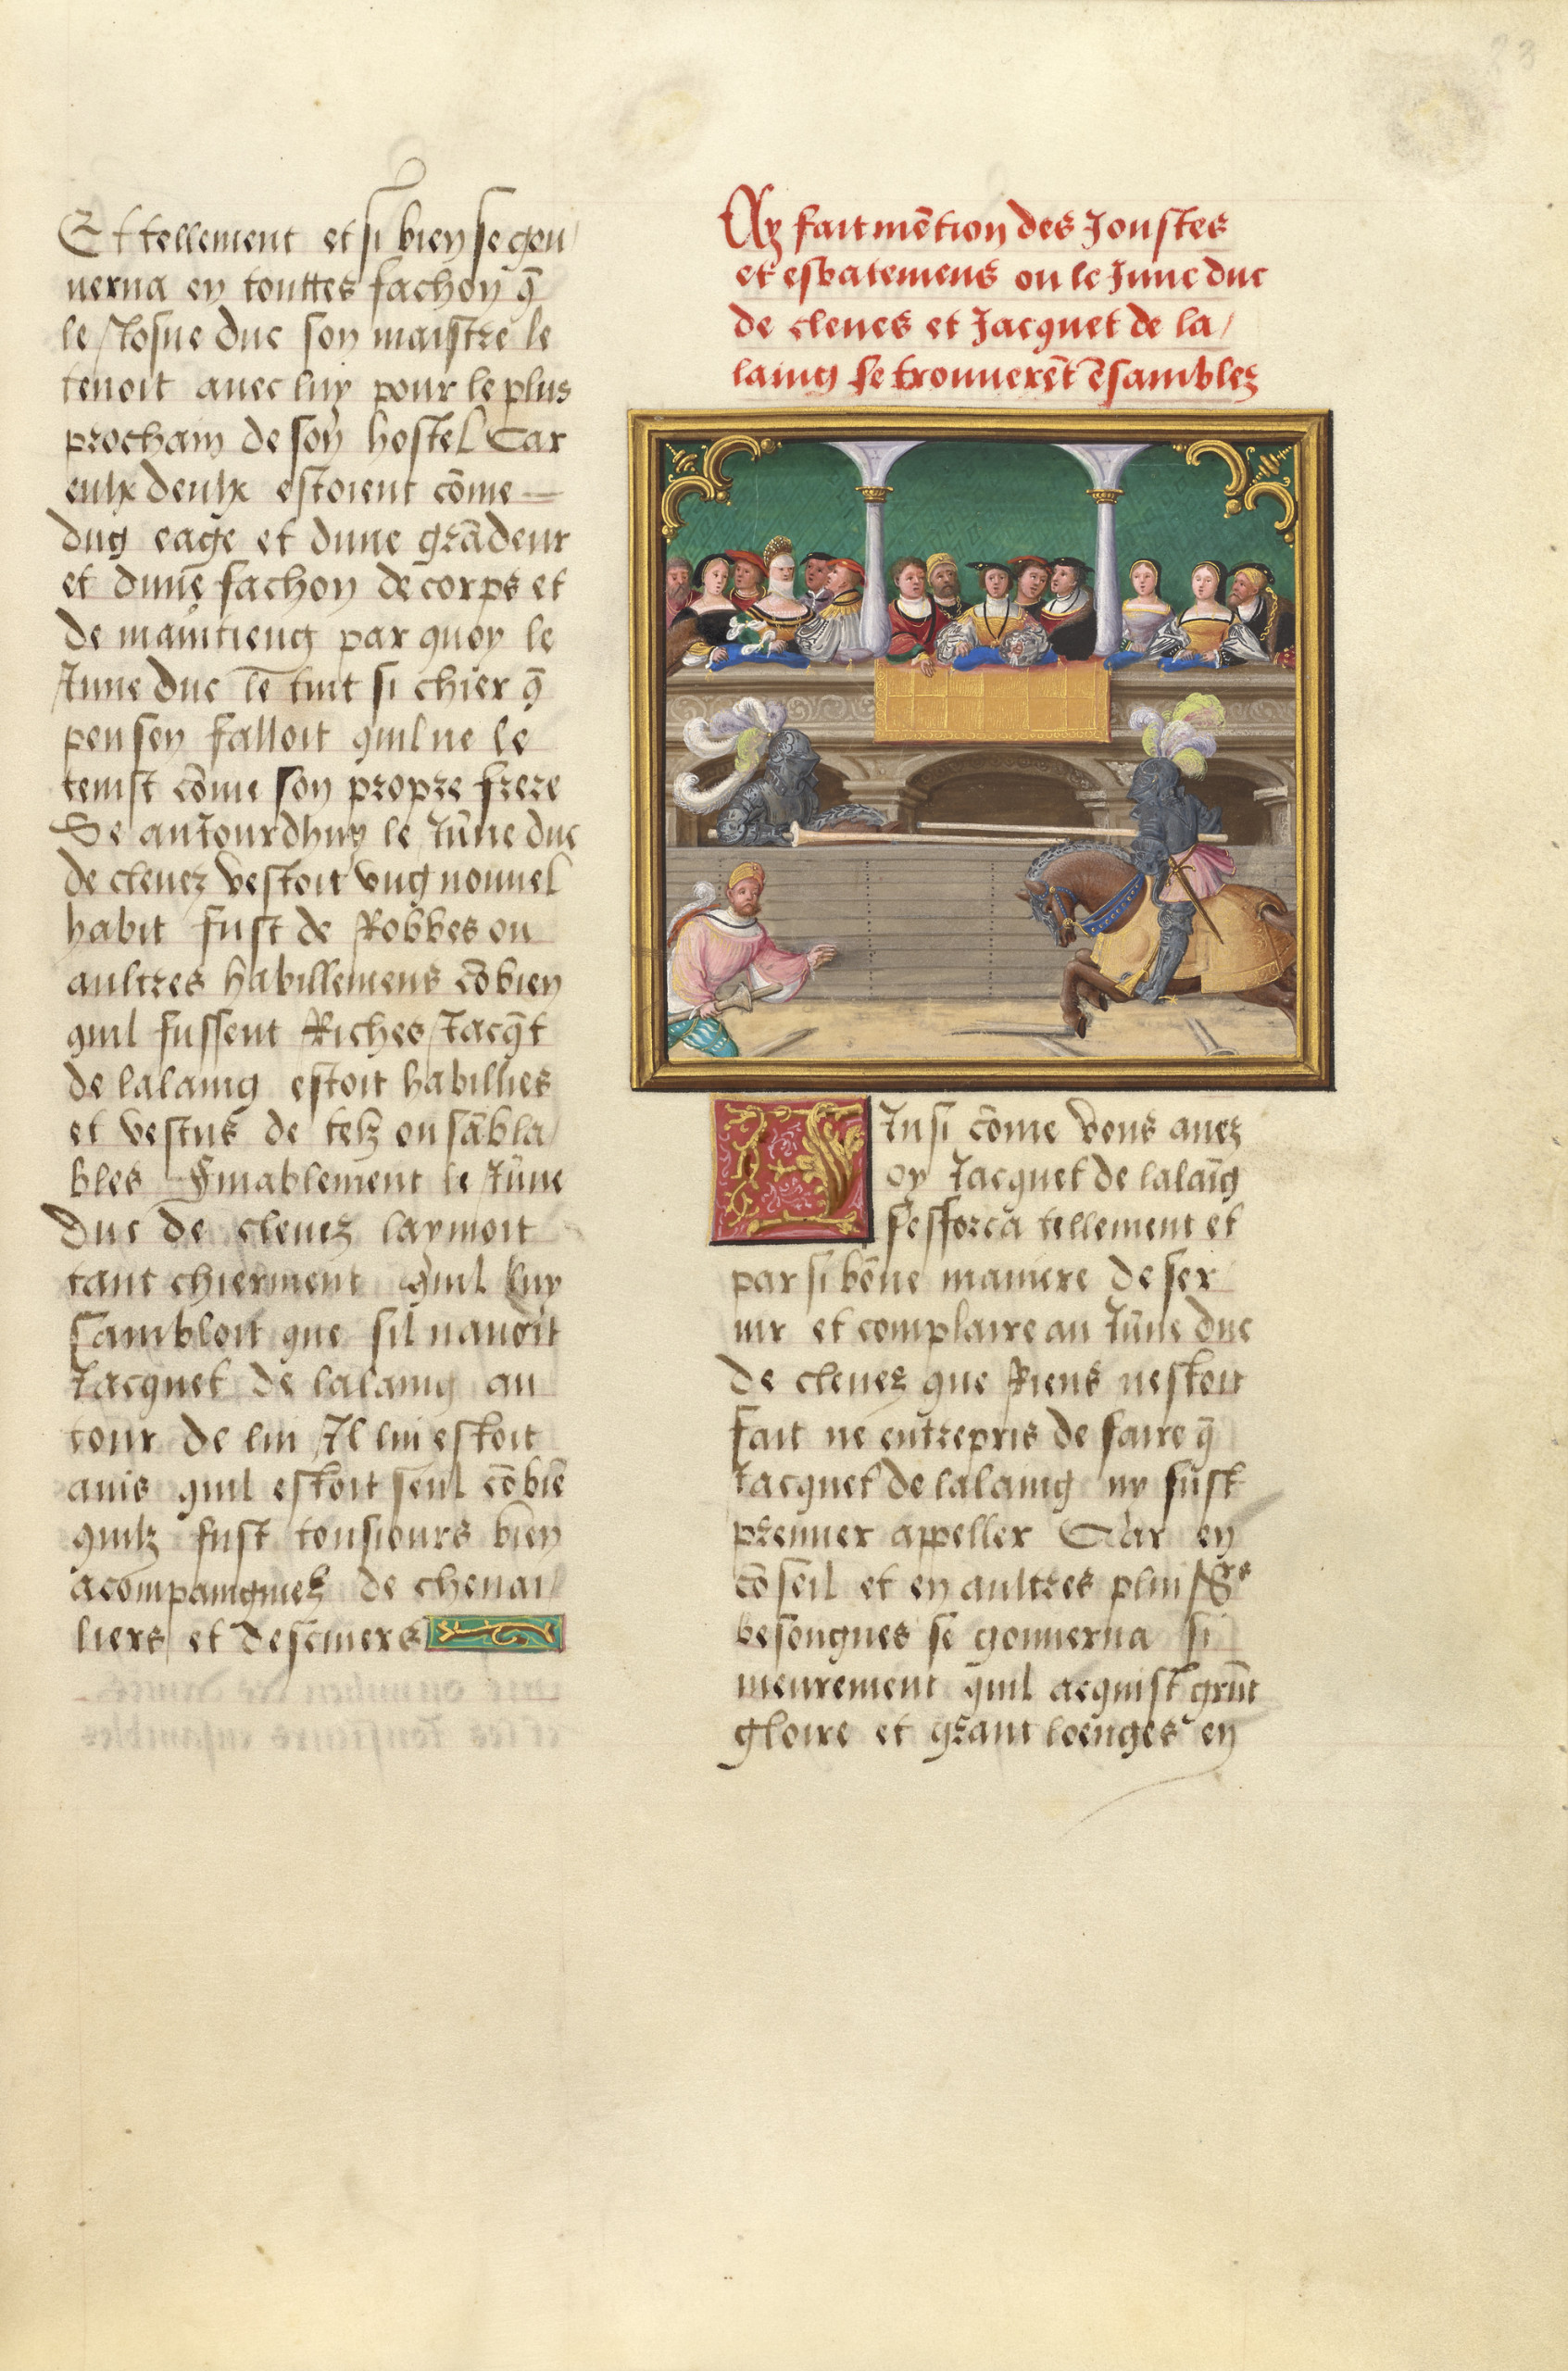 Et tellement et si bien se gou/
uerna en touttes fachon q̄
le Josne duc son maistre le
tenoit auec luy pour le plus
prochain de son hostel Car
eulx deulx estoient cōme
dug eage et dune grādeur
et dune fachon de corps et
de maintieng par quoy le
June duc le tint si chier q̄
peu sen falloit quil ne le
tenist cōme son propre frere
Se auJourdhuy le Jūne duc
de cleuez vestoit vng nouuel
habit fust de Robbes ou
aultres habillemens cōbien
quil fussent Riches Jacq̄t
de lalaing estoit habillies
et vestus de telz ou sābla/
bles Finablement le Jūne
duc de cleuez laymoit
tant chierment quil luy
sambloit que sil nauoit
Jacquet de lalaing au
tour de lui Il lui estoit
auis quil estoit seul cōbiē
quilz fust tousiours bien
acompaingniez de cheual/
liers et descuiers
Ay fait mētion des Joustes
et esbatemens ou le June duc
de cleues et Jacquet de la/
laing se trouuerēt ēsamblez
Insi cōme vous auez
oy Jacquet de lalaīg
sesforca tellement et
par si bōne maniere de ser
uir et complaire au Jūne duc
de cleuez que Riens nestoit
fait ne entrepris de faire q̄
Jacquet de lalaing ny fust
premier appeller Car en
cōseil et en aultres
besongnes se gouuerna si
meurement quil acquist grāt
gloire et grant loenges en